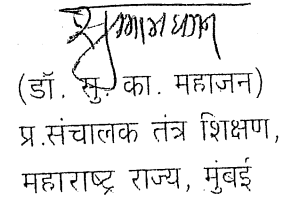 (डॉ. सु. का. महाजन)
प्र.संचालक तंत्र शिक्षण,
महाराष्ट्र राज्य, मुंबई